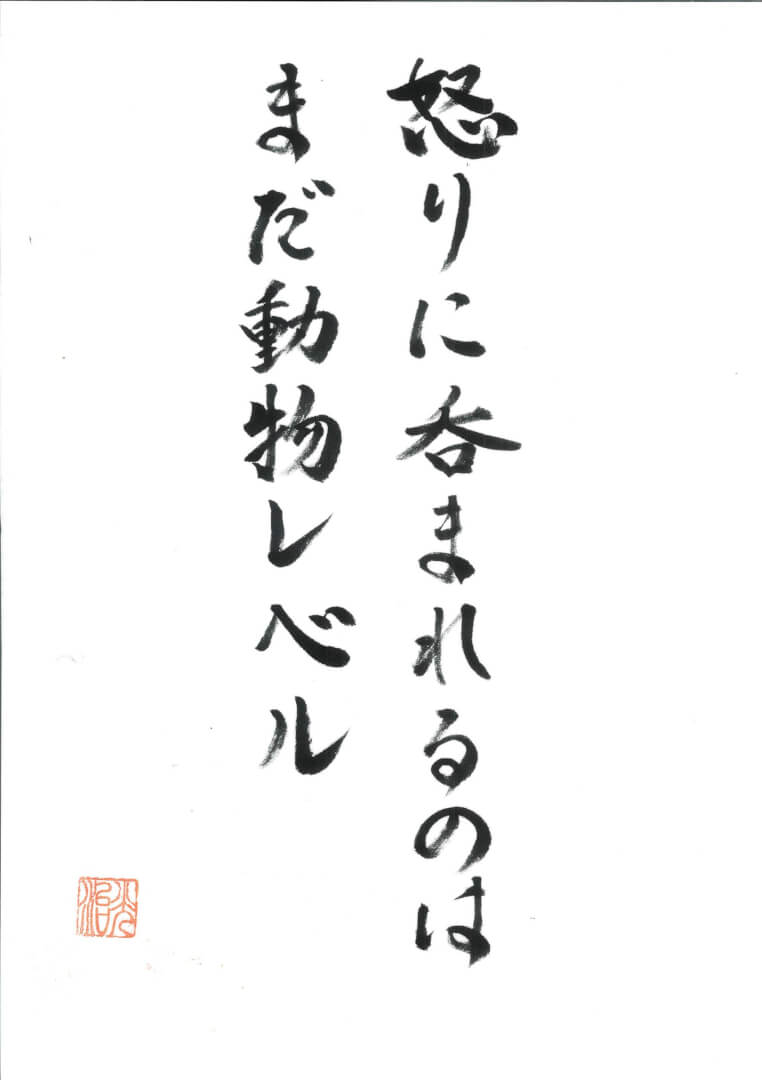 怒りに呑まれるのは
まだ動物レベル